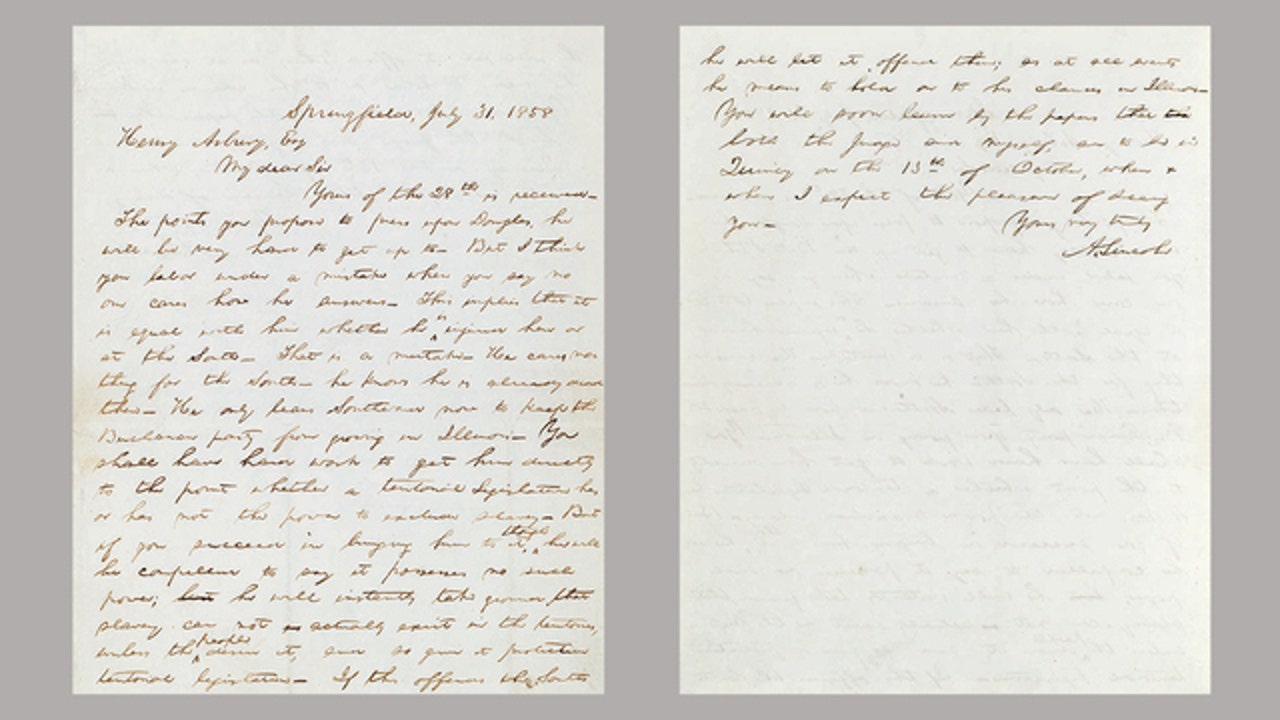 Springfield, July 31. 1858
Henry Asbury, Esq
My dear Sir
Yours of the 28th is received—
The points you propose to press upon Douglas, he
will be very hard to get up to— But I think
you labor under a mistake when you say no
one cares how he answers— This implies that it
is equal with him whether he is injured here or
at the South— That is a mistake— He cares no
thing for the South— he knows he is already dead
there— He only leans Southward now to keep the
Buchanan party from growing in Illinois— You
shall have hard work to get him directly
to the point whether a territorial Legislature has
or has not the power to exclude slavery— But
if you succeed in bringing him to it, though he will
be compelled to say it possesses no such
power; he will instantly take ground that
slavery can not actually exist in the territories,
unless the people desire it, and so give it protective
territorial legislation— If this offends the South
he will let it offend them; as at all events
he means to hold on to his chances in Illinois—
You will soon learn by the papers that
both the Judge and myself, are to be in
Quincy on the 13th of October, when &
where I expect the pleasure of seeing
you—
Yours very truly
A. Lincoln